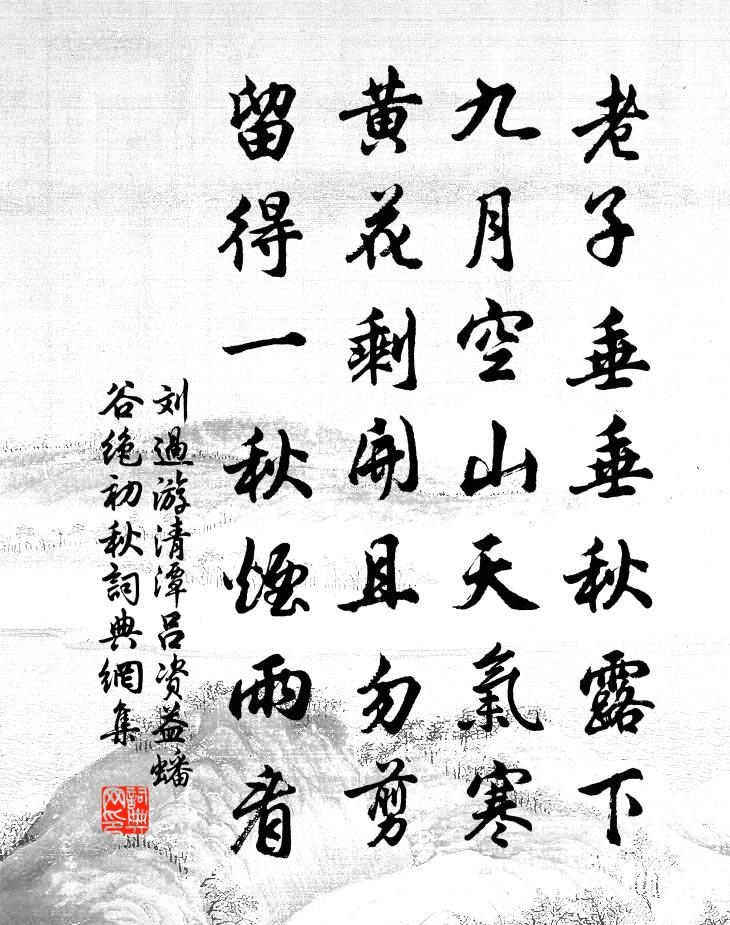 老子垂垂秋露下
九月空山天氣寒
黄花剩開且勿剪
留得一秋煙雨看
刘過游清潭吕资益蟠
谷绝初秋詞典網集
詞典
网印